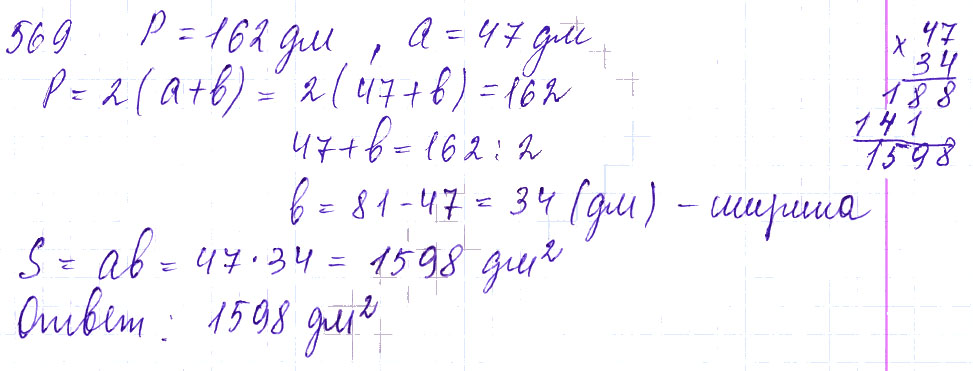 569 P = 162 дм, a = 47 дм
P = 2(a+b) = 2(47+b) = 162
47+b = 162 : 2
b = 81 - 47 = 34 (дм) - ширина
S = ab = 47 · 34 = 1598 дм²
Ответ: 1598 дм²
47
x 34
188
141
1598